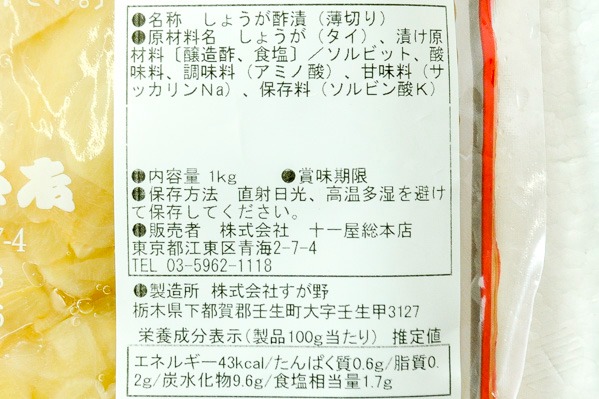 ●名称　しょうが酢漬（薄切り）
●原材料名　しょうが（タイ）、漬け原
材料〔醸造酢、食塩〕／ソルビット、酸
味料、調味料（アミノ酸）、甘味料（サ
ッカリンNa）、保存料（ソルビン酸K）
●内容量 1kg　●賞味期限
●保存方法　直射日光、高温多湿を避け
て保存してください。
●販売者　株式会社　十一屋総本店
東京都江東区青海2-7-4
TEL 03-5962-1118
●製造所 株式会社すが野
栃木県下都賀郡壬生町大字壬生甲3127
栄養成分表示（製品100g当たり）推定値
エネルギー43kcal/たんぱく質0.6g/脂質0.
2g/炭水化物9.6g/食塩相当量1.7g